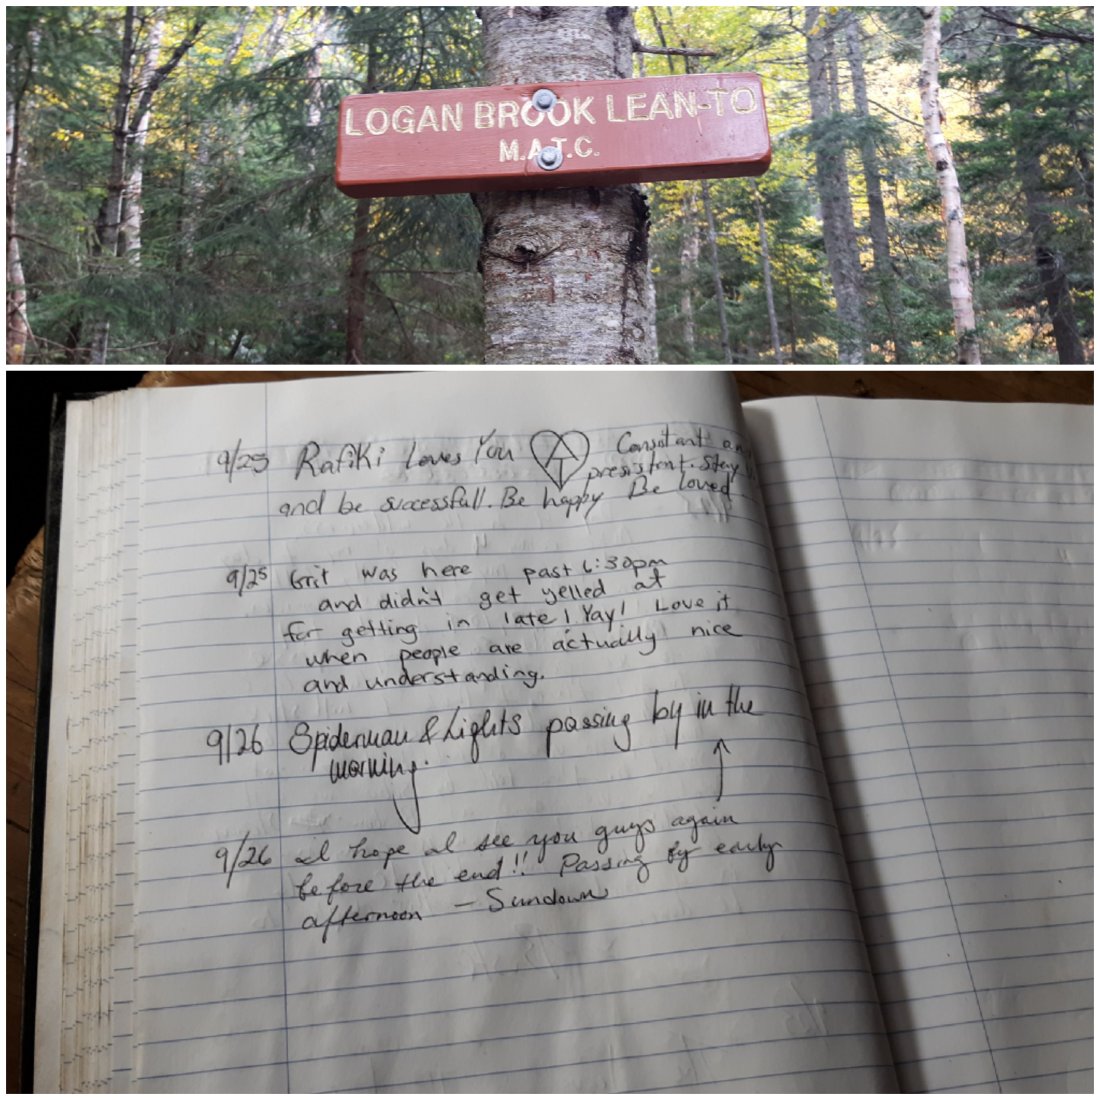 LOGAN BROOK LEAN-TO
M.A.T.C.
9/25 Rafiki Loves You Consistant an
presistant. Stay
and be successfull. Be happy Be loved
9/25 Grit was here past 6:30pm
and didn't get yelled at
for getting in late! Yay! Love it
when people are actually nice
and understanding.
9/26 Spiderman & Lights passing by in the
morning.
9/26 I hope I see you guys again
before the end!! Passing by early
afternoon - Sundown